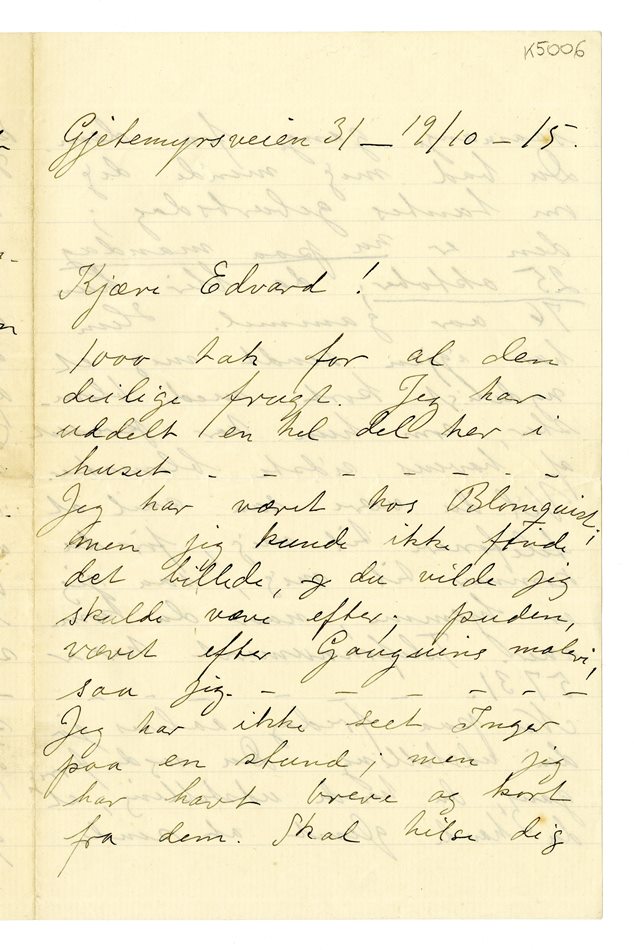 K5006
Gjetemyrsveien 31 – 19/10 – 15.
Kjære Edvard!
1000 tak for al den
deilige frugt. Jeg har
uddelt en hel del her i
huset – – – – – – –
Jeg har været hos Blomquist,
men jeg kunde ikke finde
det billede, du vilde jeg
skulde væve efter; puden,
vævet efter Gauguins maleri,
saa jeg. – – – – – – –
Jeg har ikke seet Inger
paa en stund; men jeg
har havt breve og kort
fra dem. Skal hilse dig